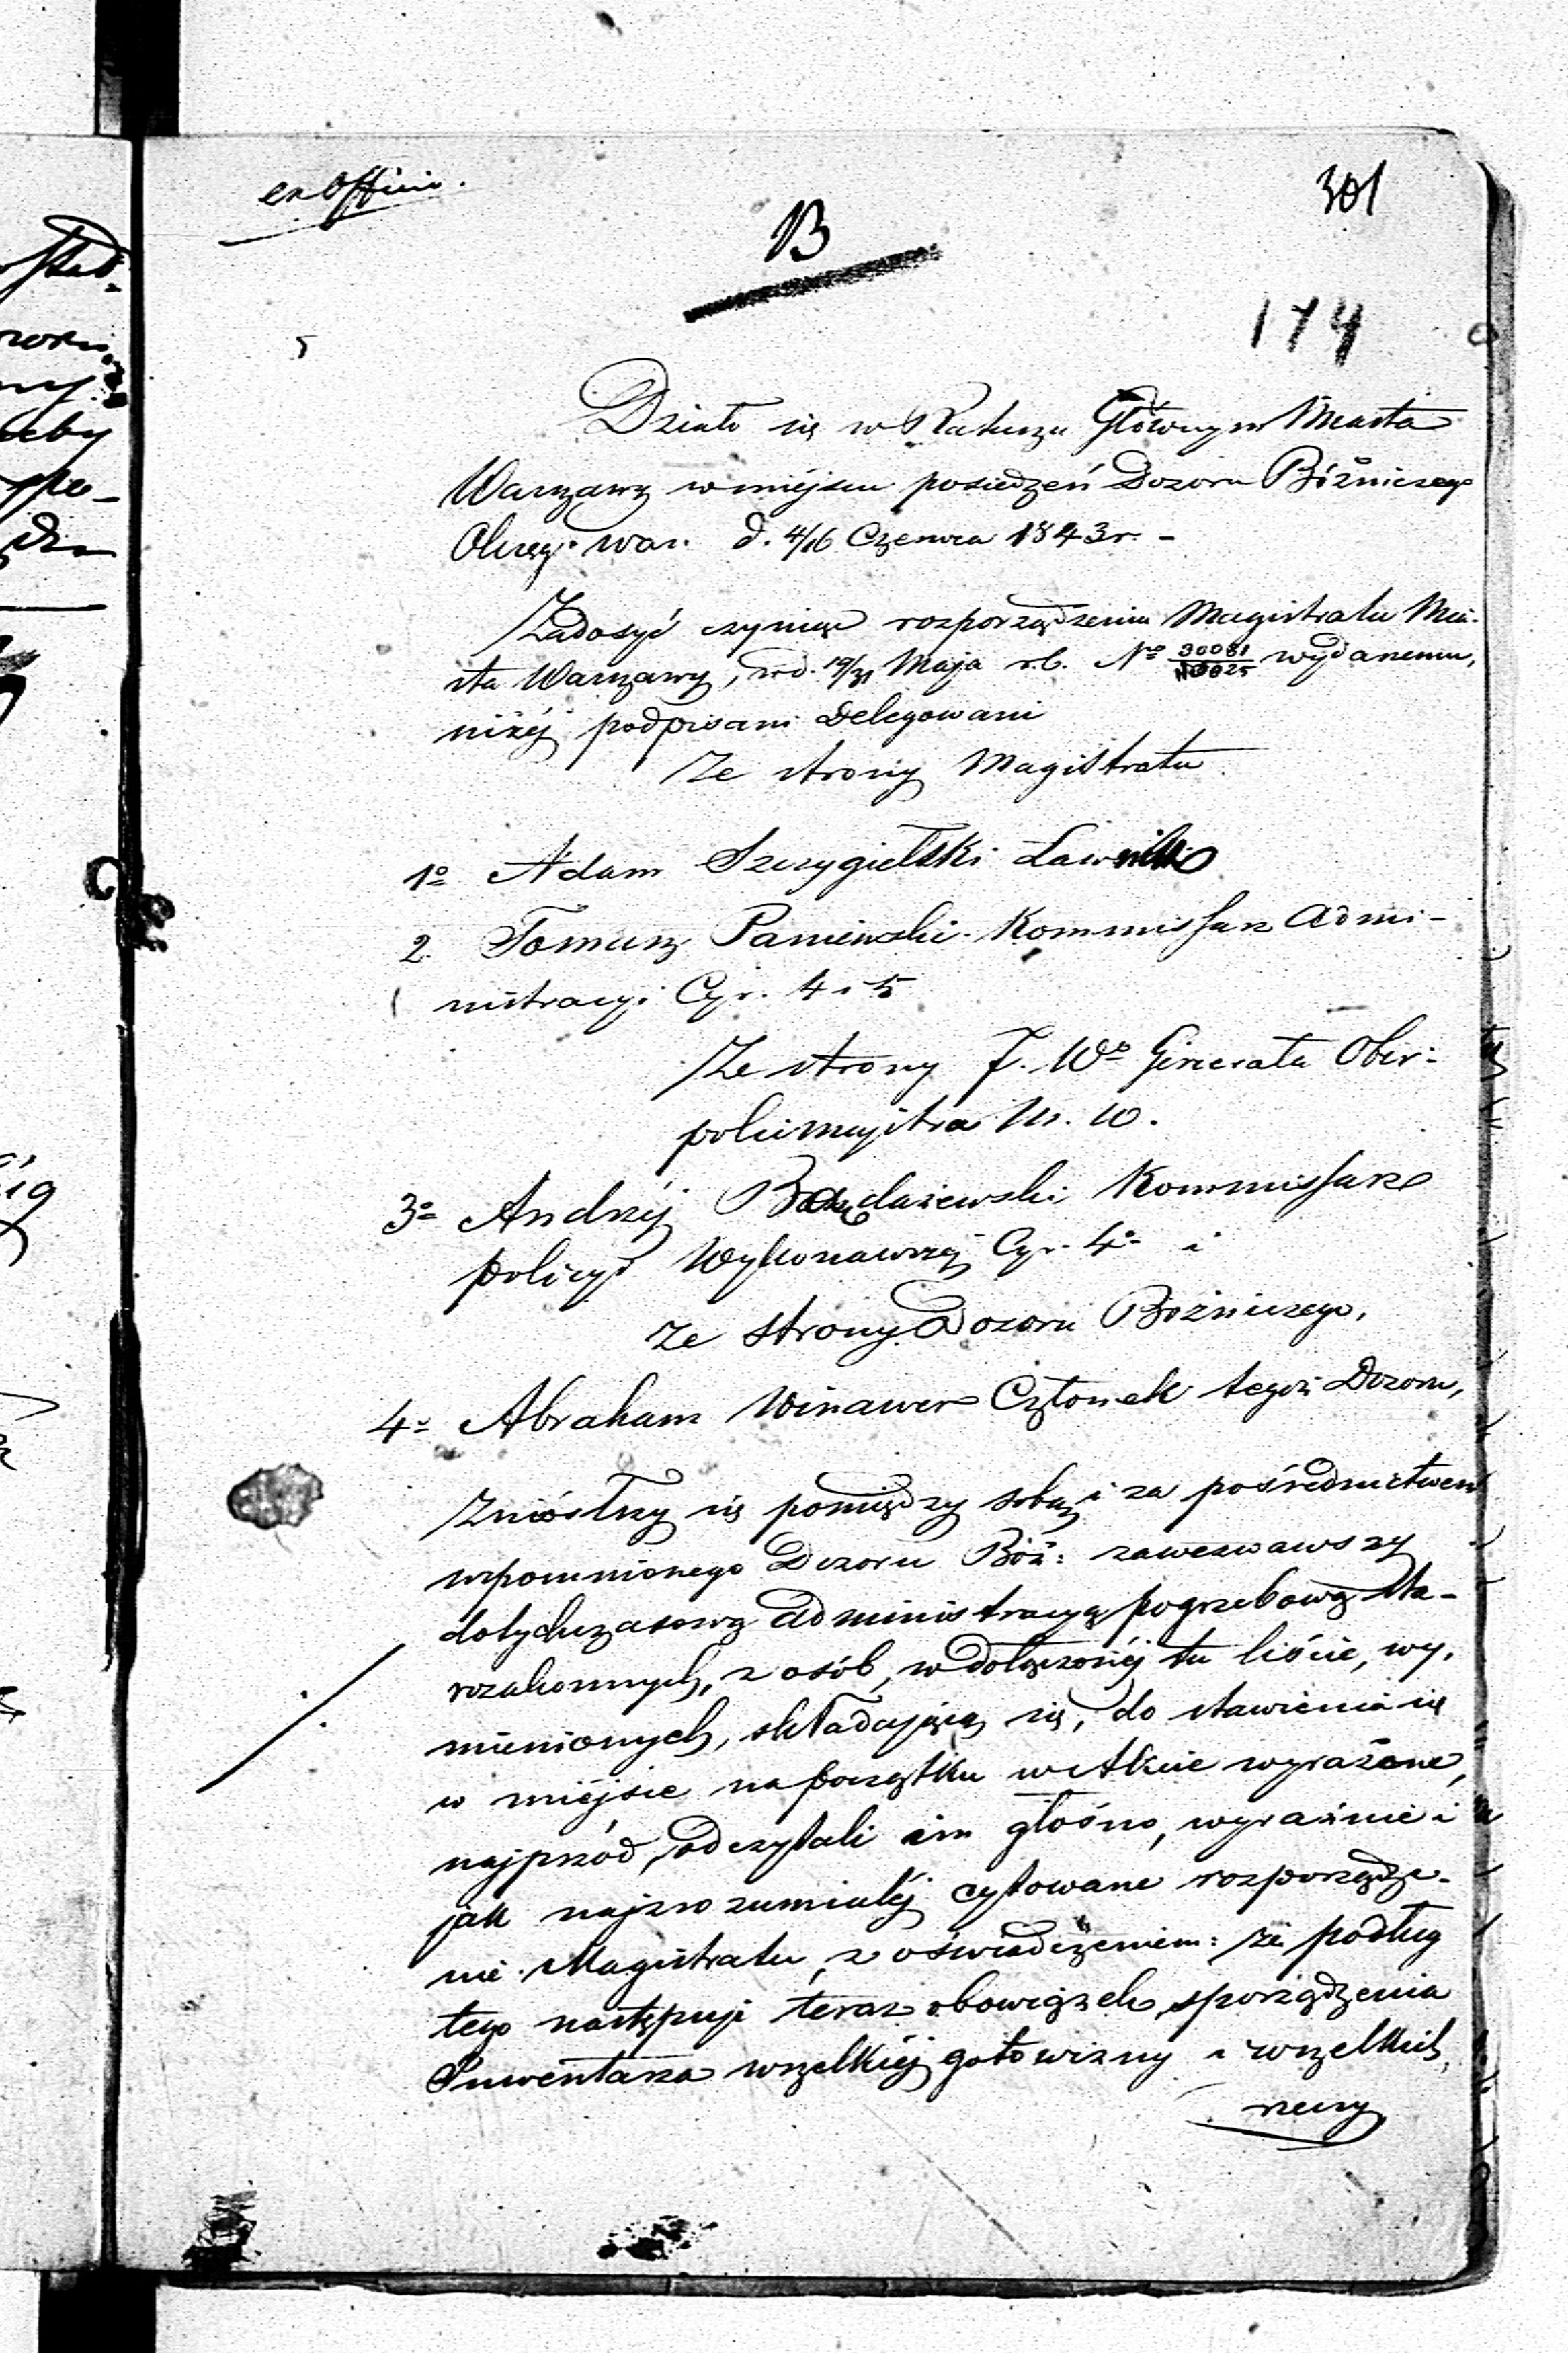 ex officio.
301
B
174
Działo się w Ratuszu Głównym Miasta
Warszawy w miéjscu posiedzeń Dozoru Bóżniczego
Okręgu War. d. 4/16 Czerwca 1843 r. –
Zadosyć czyniąc rozporządzeniu Magistratu Mia-
sta Warszawy, w d. 19/31 Maja r.b. No 30081/ wydanemu,
niżéj podpisani Delegowani
Ze strony Magistratu
1o Adam Szczygielski Ławnik
2. Tomasz Paniewski Kommissarz Admi-
nistracyi Cyr. 4 i 5
Ze strony J. Wo Generała Ober-
policmajstra M. W.
3o Andrzéj Kommissarz
policyi Wykonawczéj Cyr. 4o i
Ze strony Dozoru Bożniczego,
4o Abraham Winawer Członek tegoż Dozoru,
Zniósłszy się pomiędzy sobą i za pośrednictwem
wspomnionego Dozoru Bóż: zawezwawszy
dotychczasową administracyą pogrzebową sta-
rozakonnych, z osób, w dołączonéj tu liście, wy-
mienionych, składającą się, do stawienia się
w miéjsce na początku w Akcie wyrażone,
najprzód odczytali im głośno, wyraźnie i
jak najzrozumialéj cytowane rozporządze-
nie Magistratu, z oświadczeniem: że podług
tego następuje teraz obowiązek sporządzenia
Inwentarza wszelkiéj gotowizny i wszelkich
rzeczy